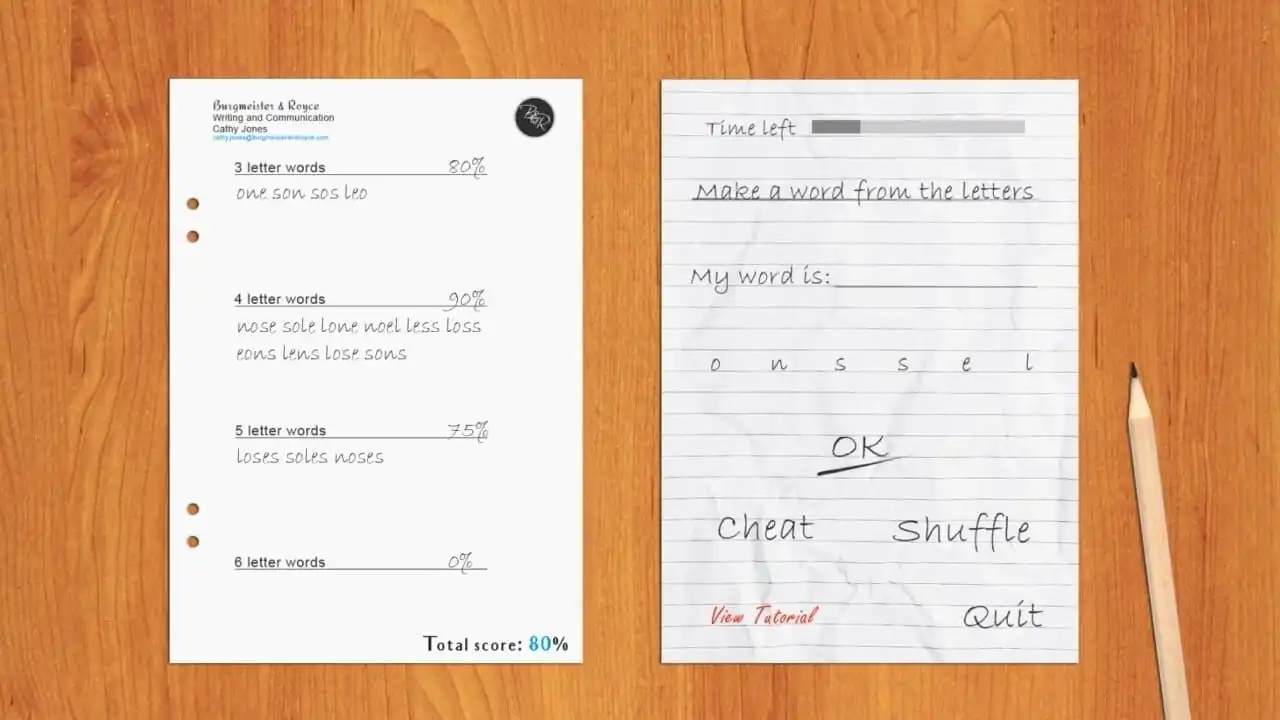 Burgmeister & Royce
Writing and Communication
Cathy Jones
cathy.jones@burgmeisterandroyce.com
B&R
3 letter words 80%
one son sos leo
4 letter words 90%
nose sole lone noel less loss
eons lens lose sons
5 letter words 75%
loses soles noses
6 letter words 0%
Total score: 80%
Time left
Make a word from the letters
My word is:
o n s s e l
OK
Cheat Shuffle
View Tutorial Quit